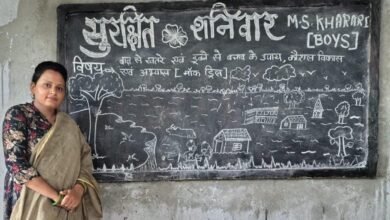 सुरक्षित शनिवार
M.S. KHARARI
[BOYS]
विषय- बाढ़ से खतरे एवं डूबने से बचाव के उपाय, कौशल विकास
एवं अभ्यास [मॉक ड्रिल]